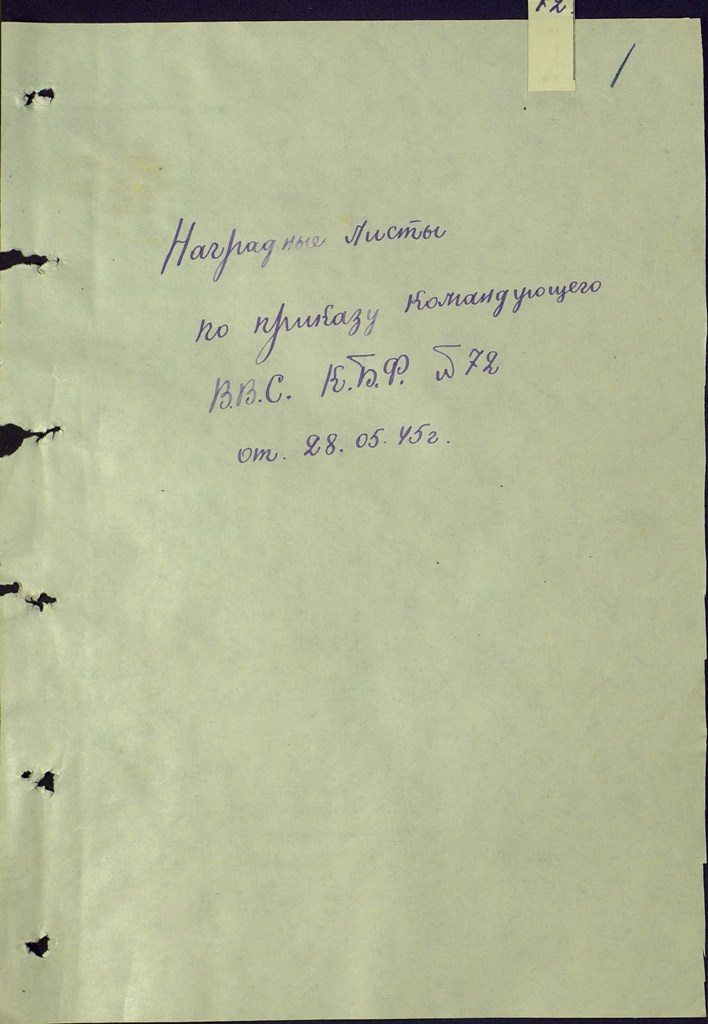 72.
1
Наградные листы
по приказу командующего
В.В.С. К.Б.Ф. №72
от. 28.05.45г.